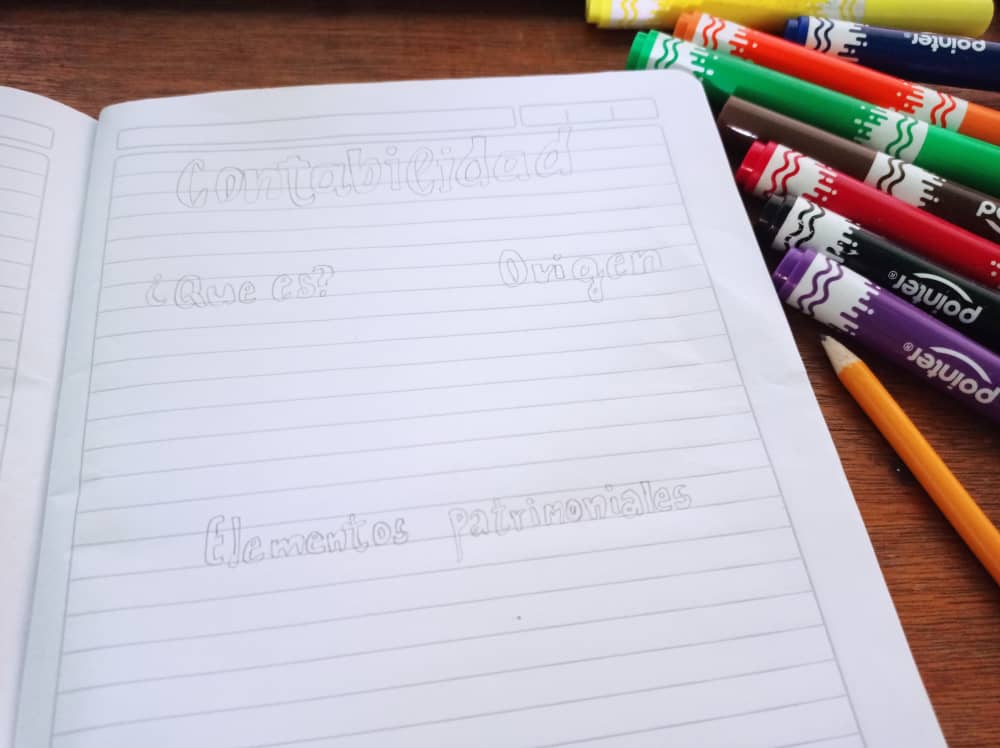 Contabilidad
¿Que es?
Origen
Elementos patrimoniales
pointer®
pointer®
pointer®